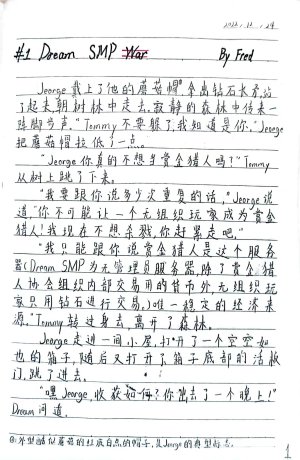 2022.12.24
#1 Dream SMP War By Fred
Jeorge 戴上了他的蘑菇帽①拿出钻石长矛站
了起来,朝树林中走去,寂静的森林中传来一
阵脚步声。"Tommy 不要躲了,我知道是你,"Jeorge
把蘑菇帽拉低了一点。
"Jeorge 你真的不想当赏金猎人吗?"Tommy
从树上跳了下来。
"我要跟你说多少次重复的话,"Jeorge说
道,"你不可能让一个无组织玩家成为赏金
猎人!我现在不想杀戮,你赶紧走吧。"
"我只能跟你说赏金猎人是这个服务
器(Dream SMP为无管理员服务器,除了赏金猎
人协会组织内部交易用的货币外,无组织玩
家只用钻石进行交易,)唯一稳定的经济来
源。"Tommy转过身去,离开了森林。
Jeorge走进一间小屋,打开了一个空空如
也的箱子,随后又打开了箱子底部的活板
门,跳了进去。
"嘿Jeorge,收获如何?你出去了一个晚上!"
Dream问道。
①:外型酷似蘑菇的红底白点的帽子,是Jeorge的典型标志。
1